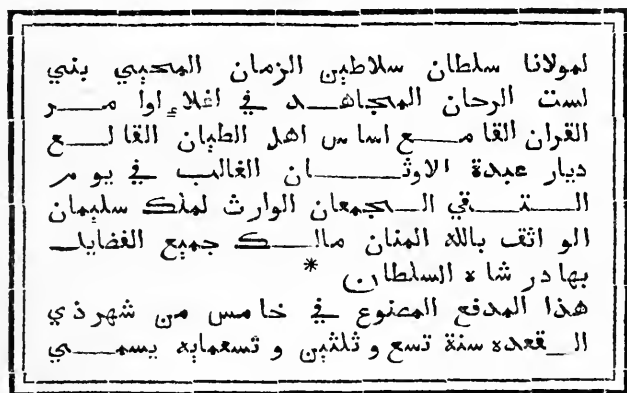 لمولانا سلطان سلاطين الزمان المحيي بني
لست الرحان المجاهد في اغلاء اوا مر
القران القامع اساس اهل الطيان القالع
ديار عبدة الاوثان الغالب في يوم
التقي الجمعان الوارث لملك سليمان
الو اثق بالله المنان مالك جميع الفضايل
بهادر شاه السلطان *
هذا المدفع المصنوع في خامس من شهر ذي
القعده سنة تسع و ثلثين و تسعمايه يسمي